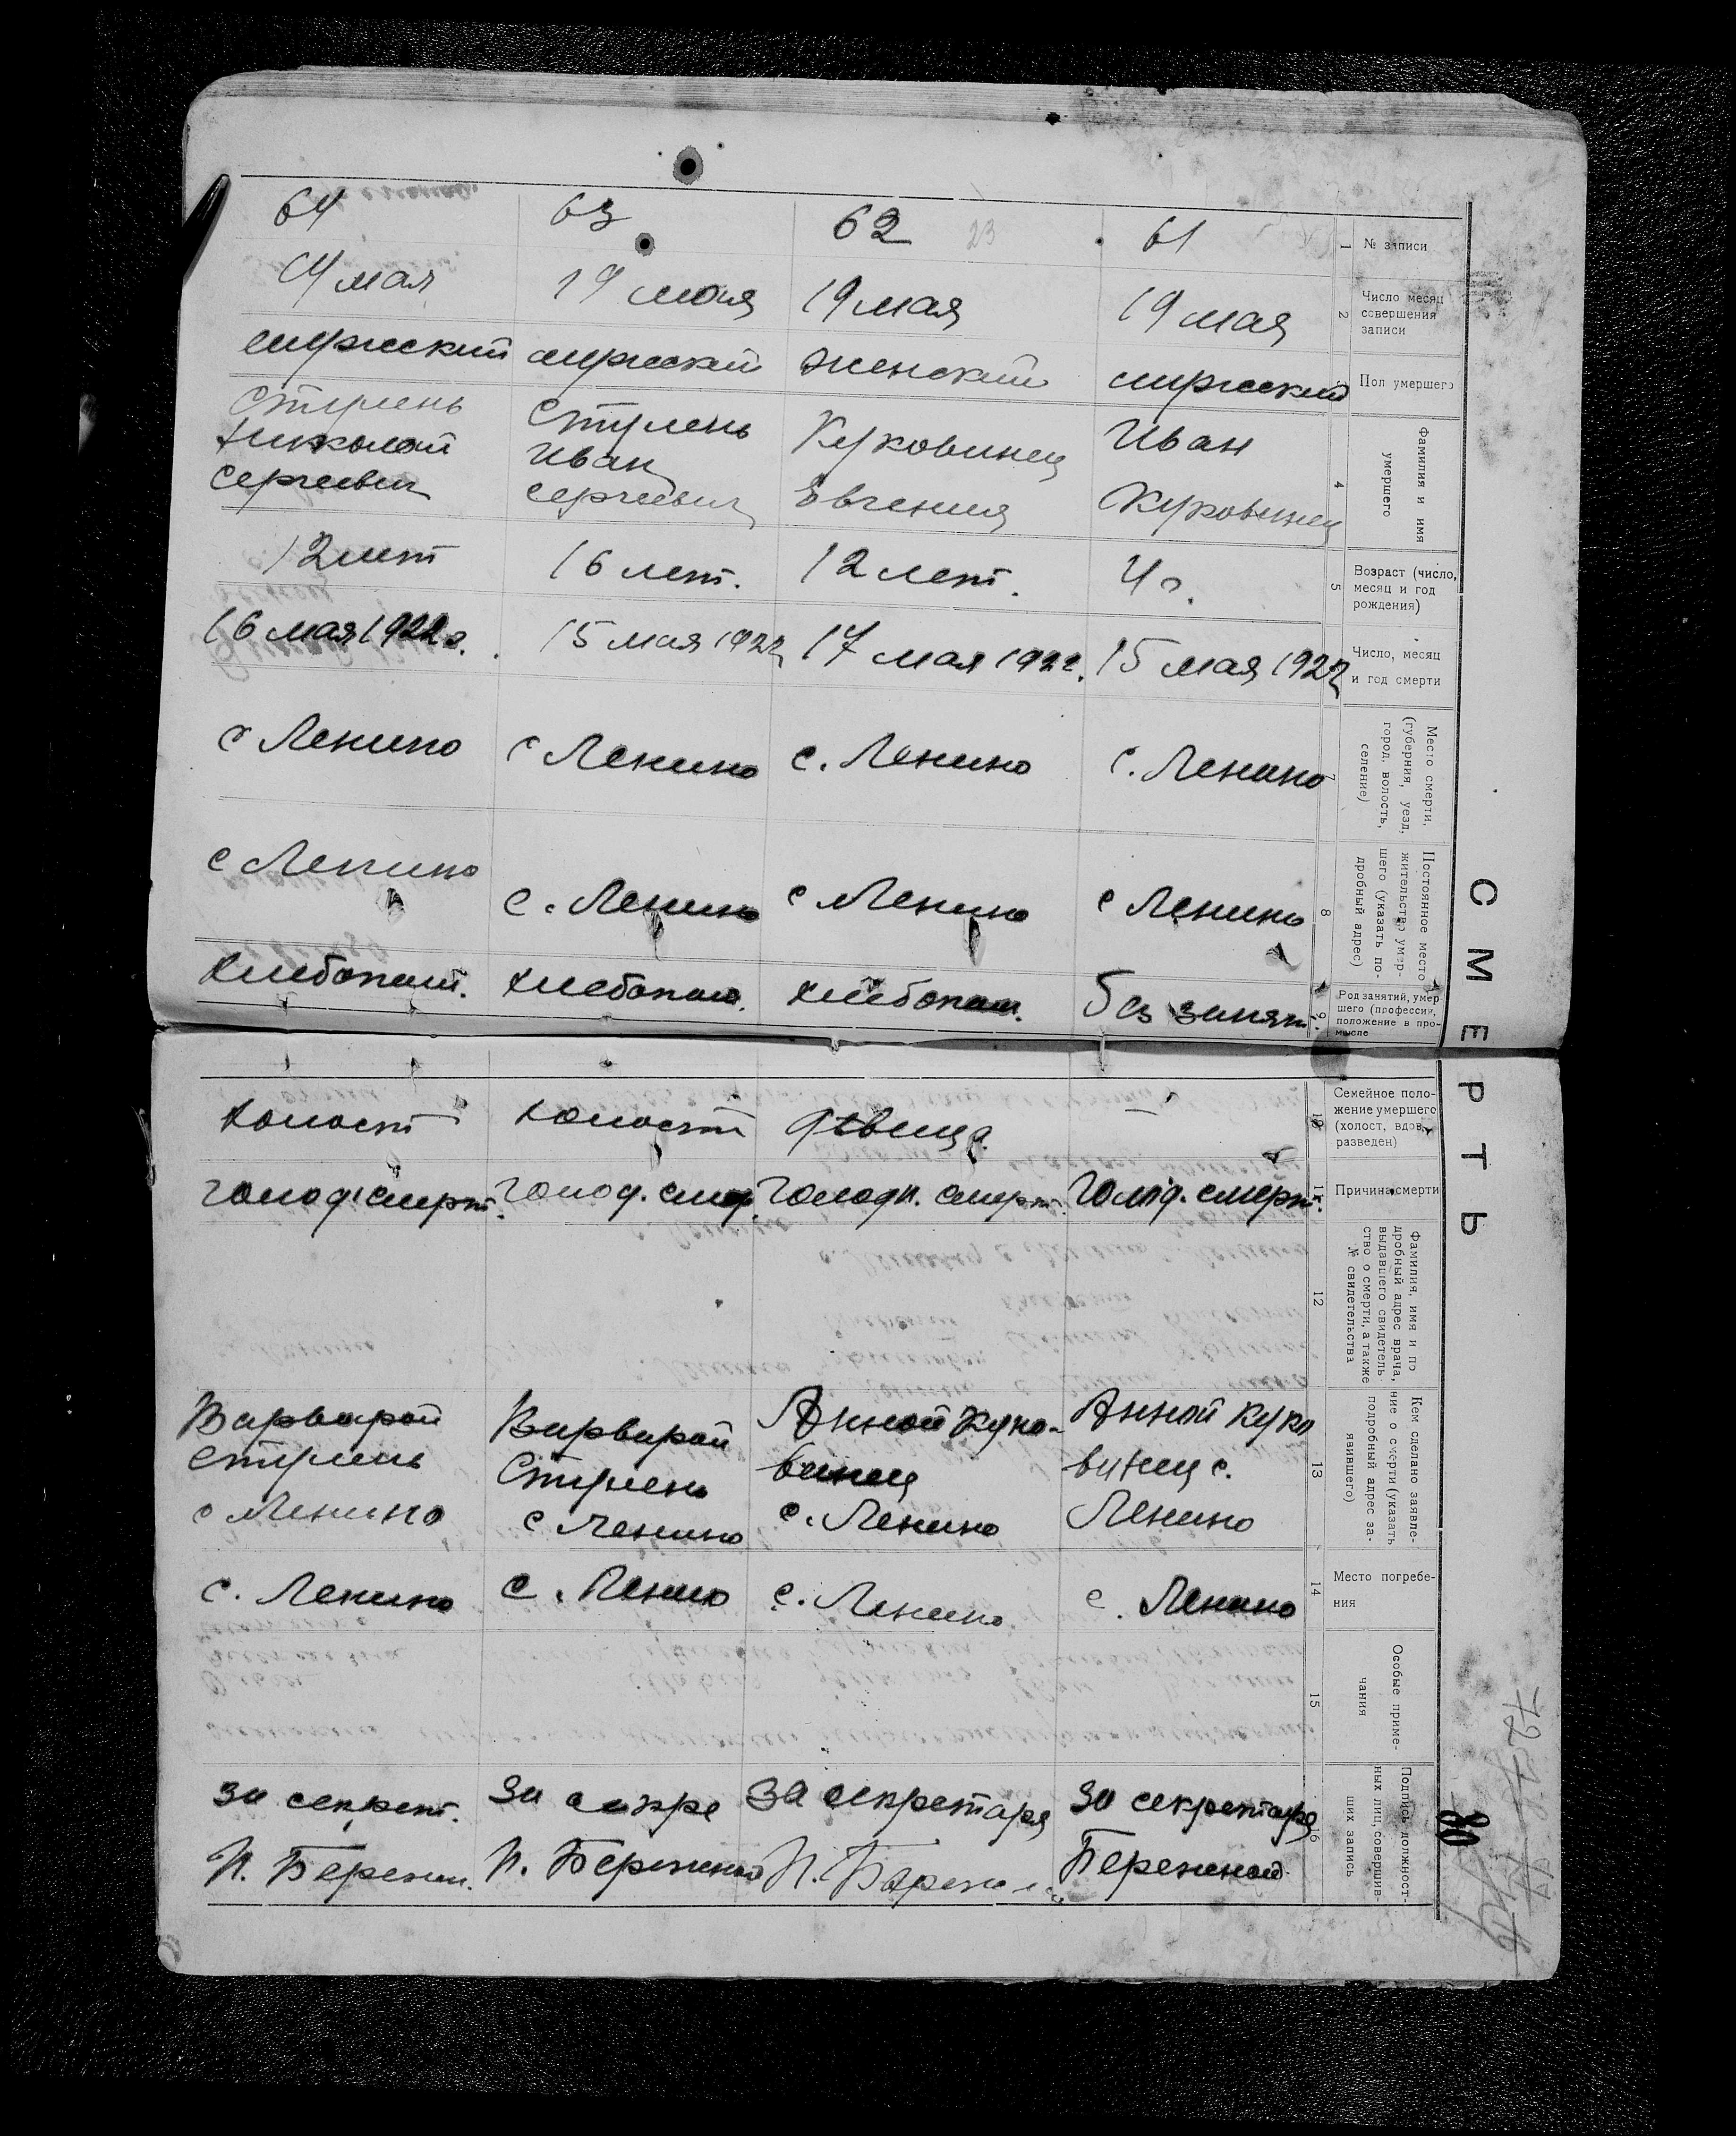 СМЕРТЬ
№ записи
1
61
62
23
63
64
Число месяц
совершения
записи
2
19 мая
19 мая
19 мая
мая
Пол умершего
мужеский
женский
мужеский
мужеский
Фамилия и имя
умершего
4
Иван
Куковинец
Куковинец
Евгения
Стрилень
Иван
Сергеевич
Стрилень
Николай
Сергеевич
Возраст (число,
месяц и год
рождения)
5
4 г.
12 лет.
16 лет.
12 лет
Число, месяц
и год смерти
15 мая 1922
17 мая 1922.
15 мая 1922
16 мая 1922 г.
Место смерти,
(губерния, уезд,
город, волость,
селение)
7
с. Ленино
с. Ленино
с Ленино
с Ленино
Постоянное место
жительство умер-
шего (указать по-
дробный адрес)
8
с Ленино
с Ленино
с. Ленино
с Ленино
Род занятий, умер
шего (профессия,
положение в про-
мысле
9
Без занят.
хлебопаш.
хлебопаш.
хлебопаш.
Семейное поло-
жение умершего
(холост, вдов,
разведен)
10
—
дѣвица
холост
холост
Причина смерти
11
Голод. смерт.
Голодн. смерт.
Голод. смер.
Голод. смерт.
Фамилия, имя и по
дробный адрес врача,
выдавшего свидетель-
ство о смерти, а также
№ свидетельства
12
Кем сделано заявле-
ние о смерти (указать
подробный адрес за-
явившего)
13
Анной Куко
винец с.
Ленино
Анной Куко-
винец
с. Ленино
Варварой
Стрилень
с Ленино
Варварой
Стрилень
с Ленино
Место погребе-
ния
14
с. Ленино
с. Ленино
с. Ленино
с. Ленино
Особые приме-
чания
15
Подпись должност-
ных лиц, совершив-
ших запись
16
За секретаря
Бережной
За секретаря
И. Бережной
За секре
И. Бережной
За секрет.
И. Бережн.
80